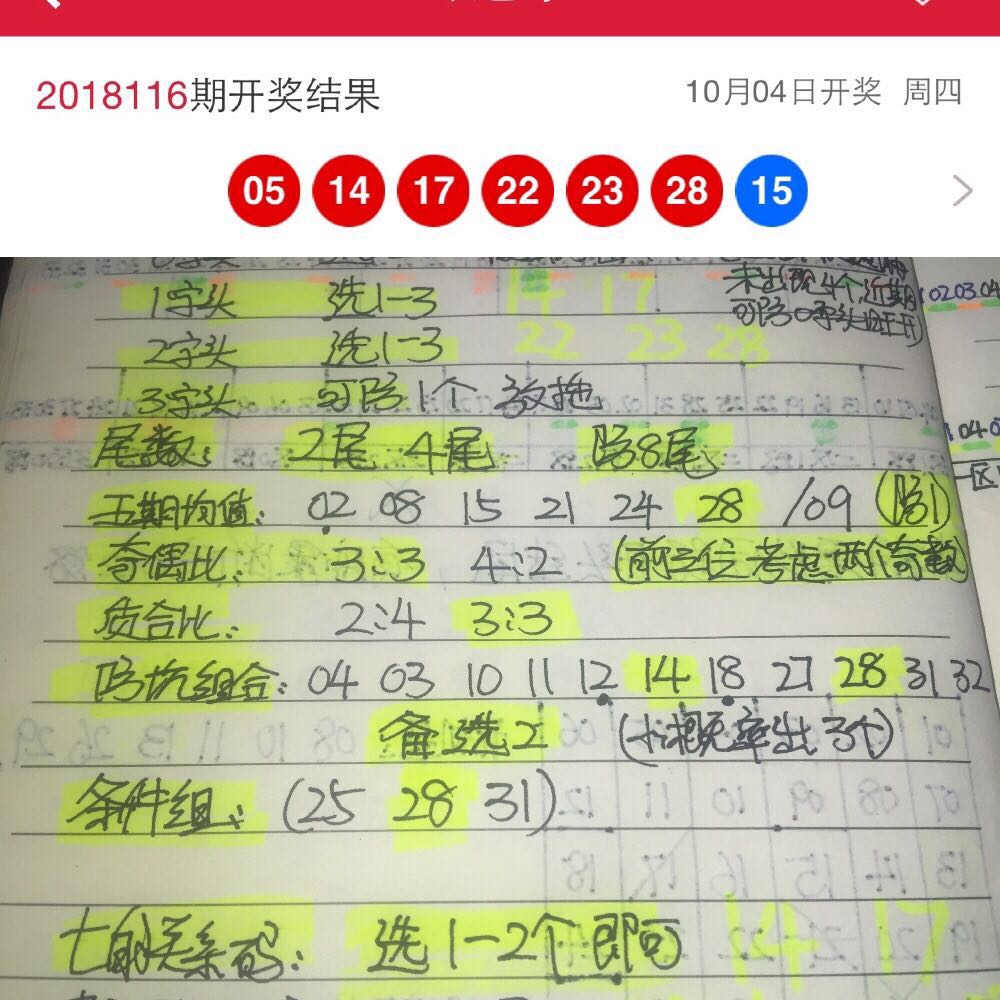 2018116期开奖结果 10月04日开奖 周四
05 14 17 22 23 28 15
1字头 选1-3 14 17
未出现4个,近期
02.03.04
2字头 选1-3 22 23 28
3字头 可防1个
尾数: 2尾 4尾 防8尾
五期均值: 02 08 15 21 24 28 /09 (防1)
奇偶比: 3:3 4:2 (前三位考虑两个奇数)
质合比: 2:4 3:3
防坑组合: 04 03 10 11 12 14 18 27 28 31 32
备选2 (小概率出3个)
条件组: (25 28 31)
关系码: 选1-2个即可 14 17